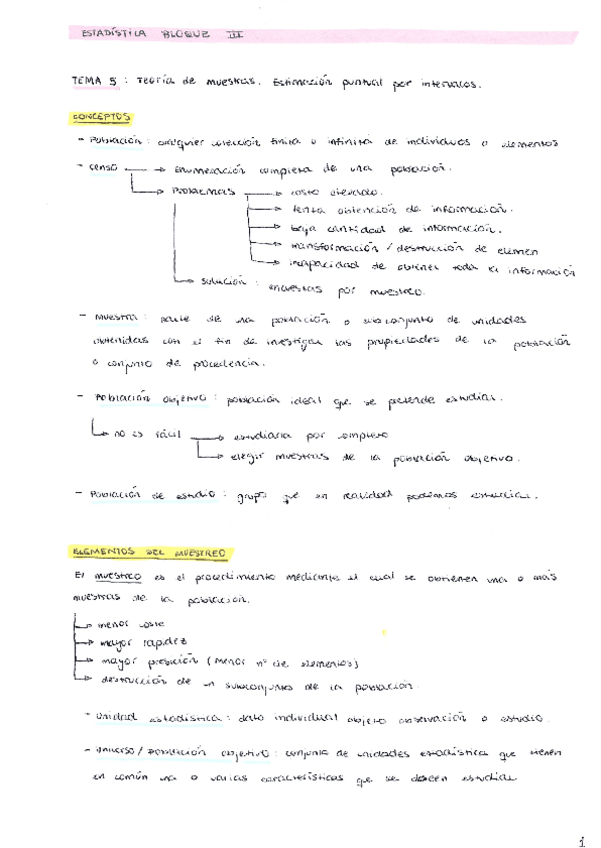 ESTADÍSTICA BLOQUE III
TEMA 5 : Teoría de muestras. Estimación puntual por intervalos.
CONCEPTOS
- Población : cualquier colección finita o infinita de individuos o elementos
- Censo → enumeración completa de una población.
→ Problemas → coste elevado.
→ lenta obtención de información.
→ baja cantidad de información.
→ transformación / destrucción de elemen
→ incapacidad de obtener toda la información
→ solución : encuestas por muestreo.
- Muestra : parte de una población o subconjunto de unidades
obtenidas con el fin de investigar las propiedades de la población
o conjunto de procedencia.
- Población objetivo : población ideal que se pretende estudiar.
→ no es fácil → estudiarla por completo
→ elegir muestras de la población objetivo.
- Población de estudio : grupo que en realidad podemos estudiar.
ELEMENTOS DEL MUESTREO
El muestreo es el procedimiento mediante el cual se obtienen una o más
muestras de la población.
→ menor coste
→ mayor rapidez
→ mayor precisión (menor nº de elementos)
→ destrucción de un subconjunto de la población.
- Unidad estadística : dato individual objeto observación o estudio.
- Universo / Población objetivo : conjunto de unidades estadística que tienen
en común una o varias características que se deseen estudiar
1